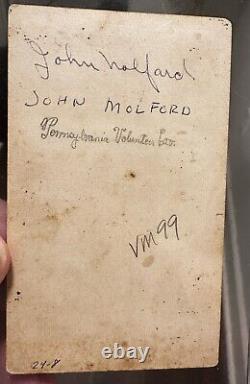 John Molford
JOHN MOLFORD
Pennsylvania Volunteer
VM99
24-8